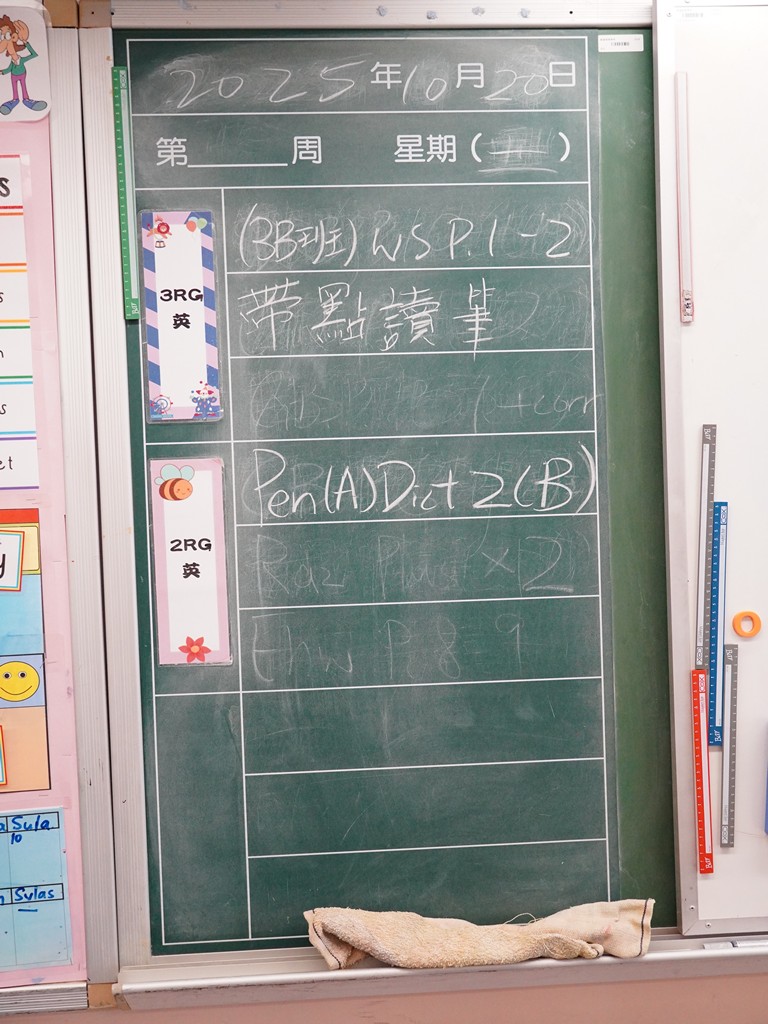 2025年10月20日
第______周 星期( )
3RG
英
(3B班) WS P.1-2
帶點讀筆
+corr
2RG
英
Pen(A)Dict 2(B)
x 2
P 8 - 9
s
s
n
s
et
y
Sula
10
Sylas